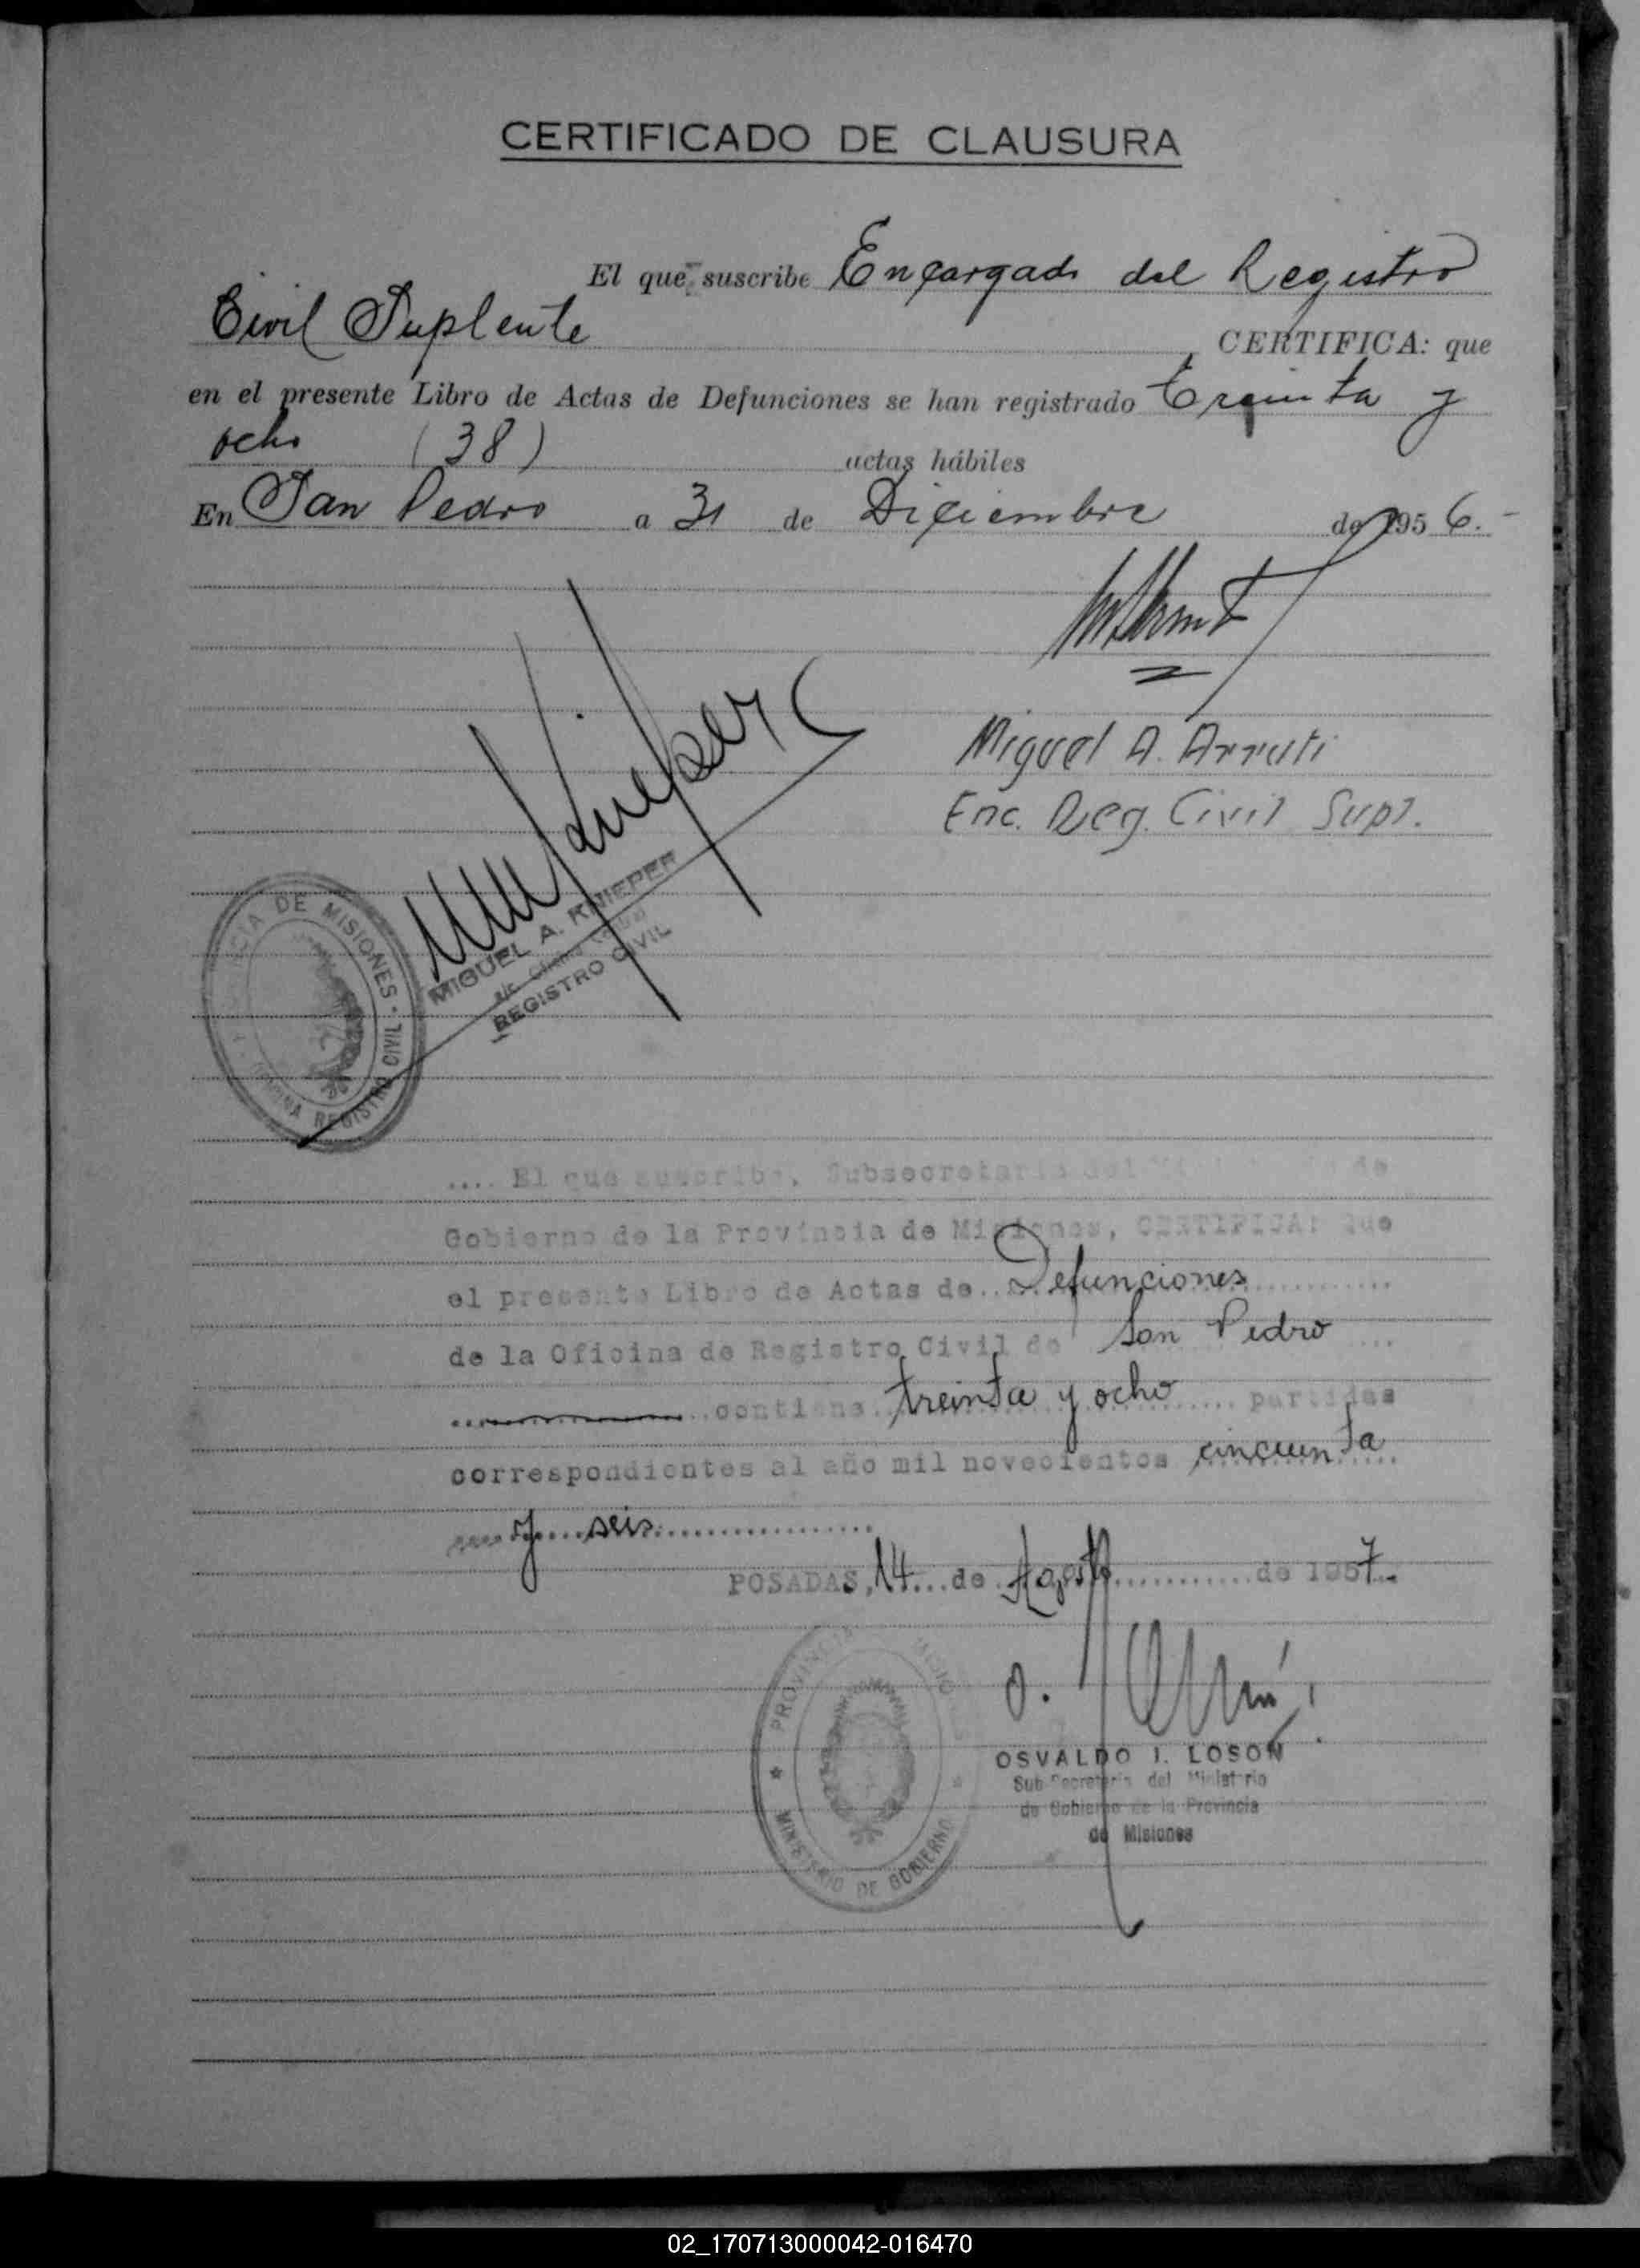 CERTIFICADO DE CLAUSURA
El que suscribe Encargado del Registro
Civil Suplente CERTIFICA: que
en el presente Libro de Actas de Defunciones se han registrado treinta y
ocho (38) actas hábiles
En San Pedro a 31 de Diciembre de 1956.-
Miguel A. Arruti
Enc. Reg. Civil Supl.
MIGUEL A. KNIEPER
a/c. Oficina Central
REGISTRO CIVIL
PROVINCIA DE MISIONES - OFICINA REGISTRO CIVIL
.... El que suscribe, Subsecretario del de
Gobierno de la Provincia de Misiones, CERTIFICA: Que
el presente Libro de Actas de.. Defunciones............
de la Oficina de Registro Civil de San Pedro ...
contiene treinta y ocho partidas
correspondientes al año mil novecientos cincuenta
y seis
POSADAS, 14...de Agosto............de 1957.-
PROVINCIA MISIONES * MINISTERIO DE GOBIERNO *
OSVALDO I. LOSON
Sub-Secretario del Ministerio
de Gobierno de la Provincia
de Misiones
02_170713000042-016470